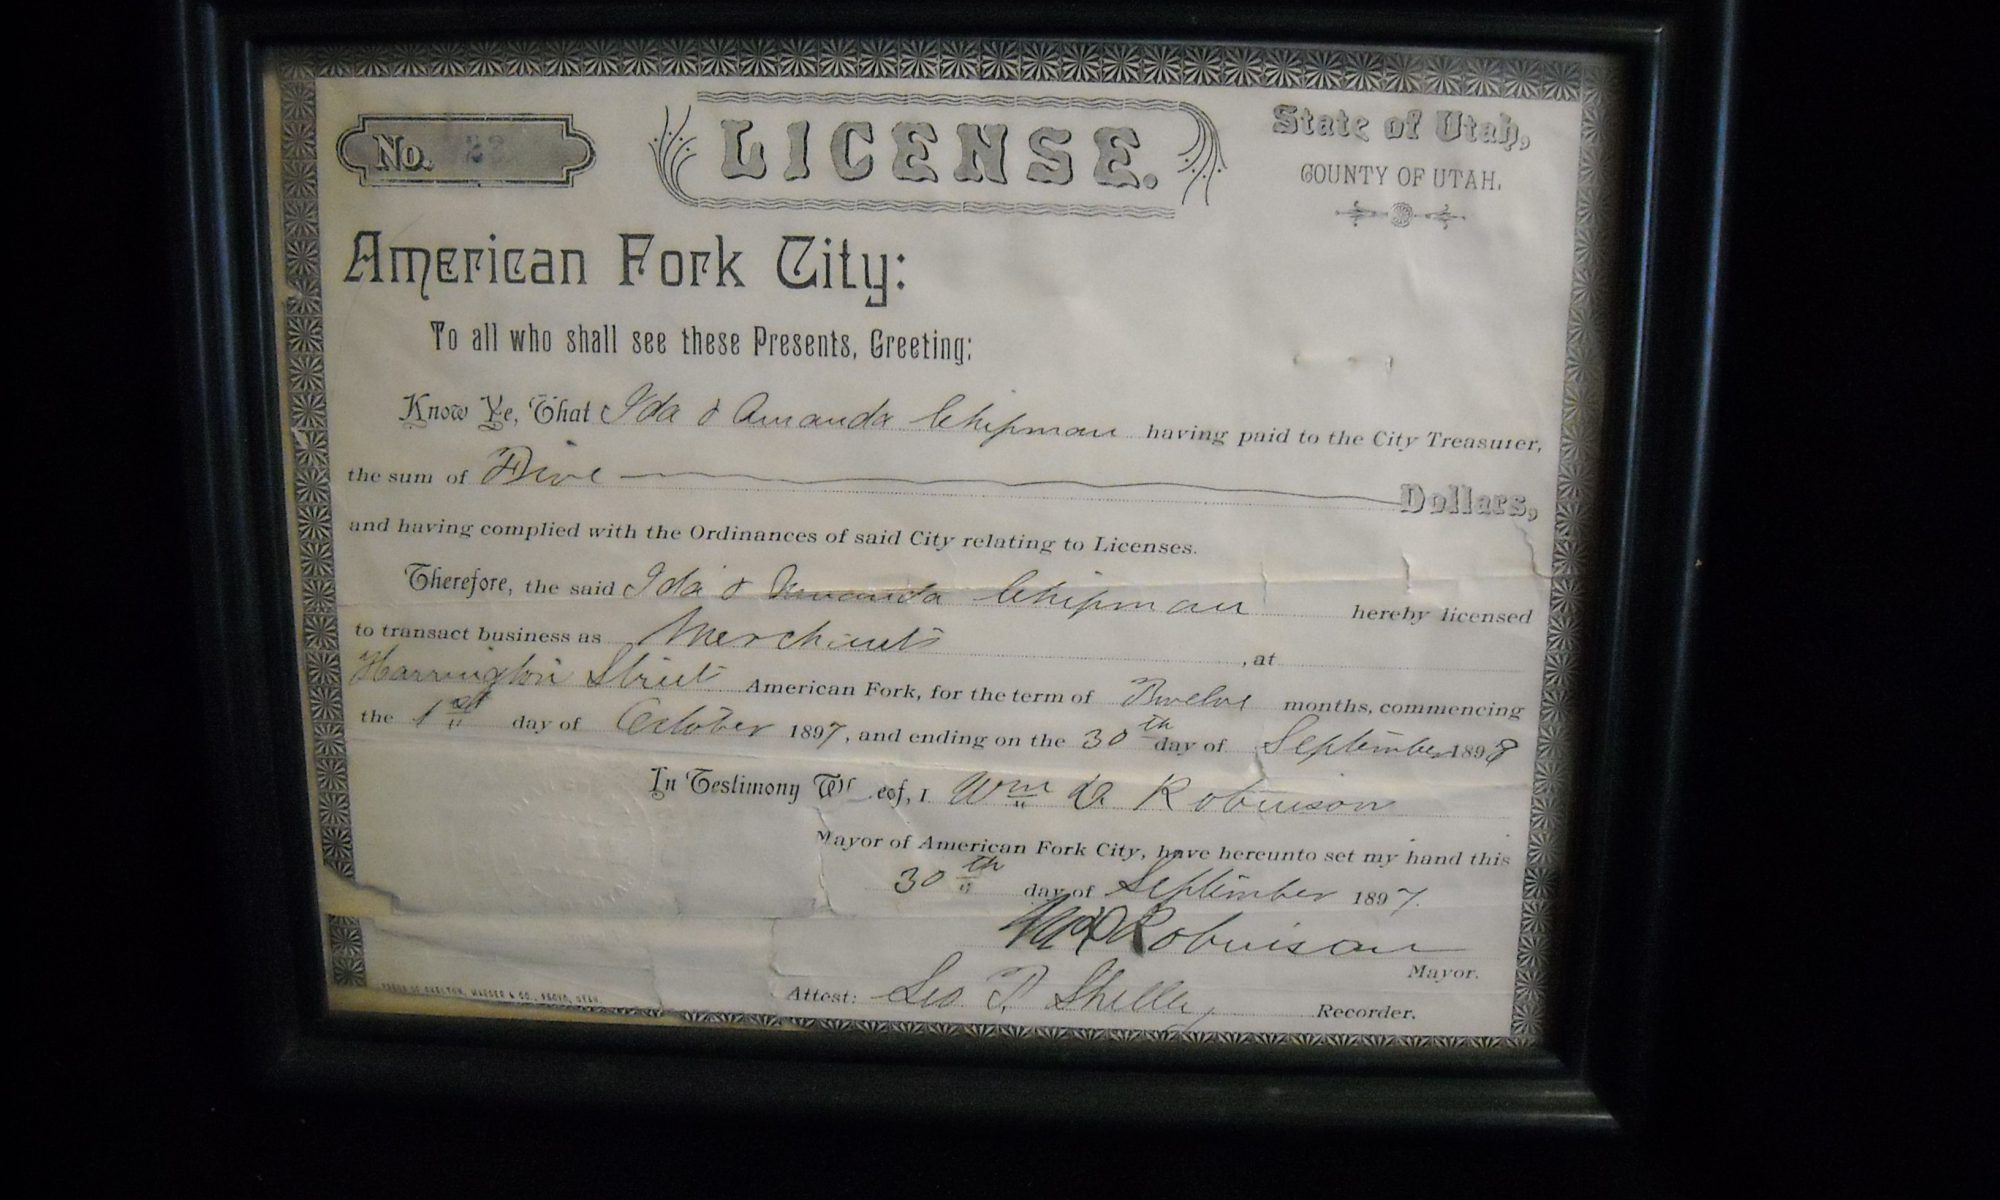 No.
LICENSE.
State of Utah,
COUNTY OF UTAH.
American Fork City:
To all who shall see these Presents, Greeting:
Know Ye, That Ida & Amanda Chipman having paid to the City Treasurer,
the sum of Five Dollars,
and having complied with the Ordinances of said City relating to Licenses.
Therefore, the said Ida & Amanda Chipman hereby licensed
to transact business as Merchants , at
Harrington Street American Fork, for the term of Twelve months, commencing
the 1st day of October 1897, and ending on the 30th day of September 1898
In Testimony eof, I Wm D Robinson
Mayor of American Fork City, have hereunto set my hand this
30th day of September 1897.
Wm D Robinson
Mayor.
Attest: Geo. T. Shelley
Recorder.
& CO., PROVO, UTAH.